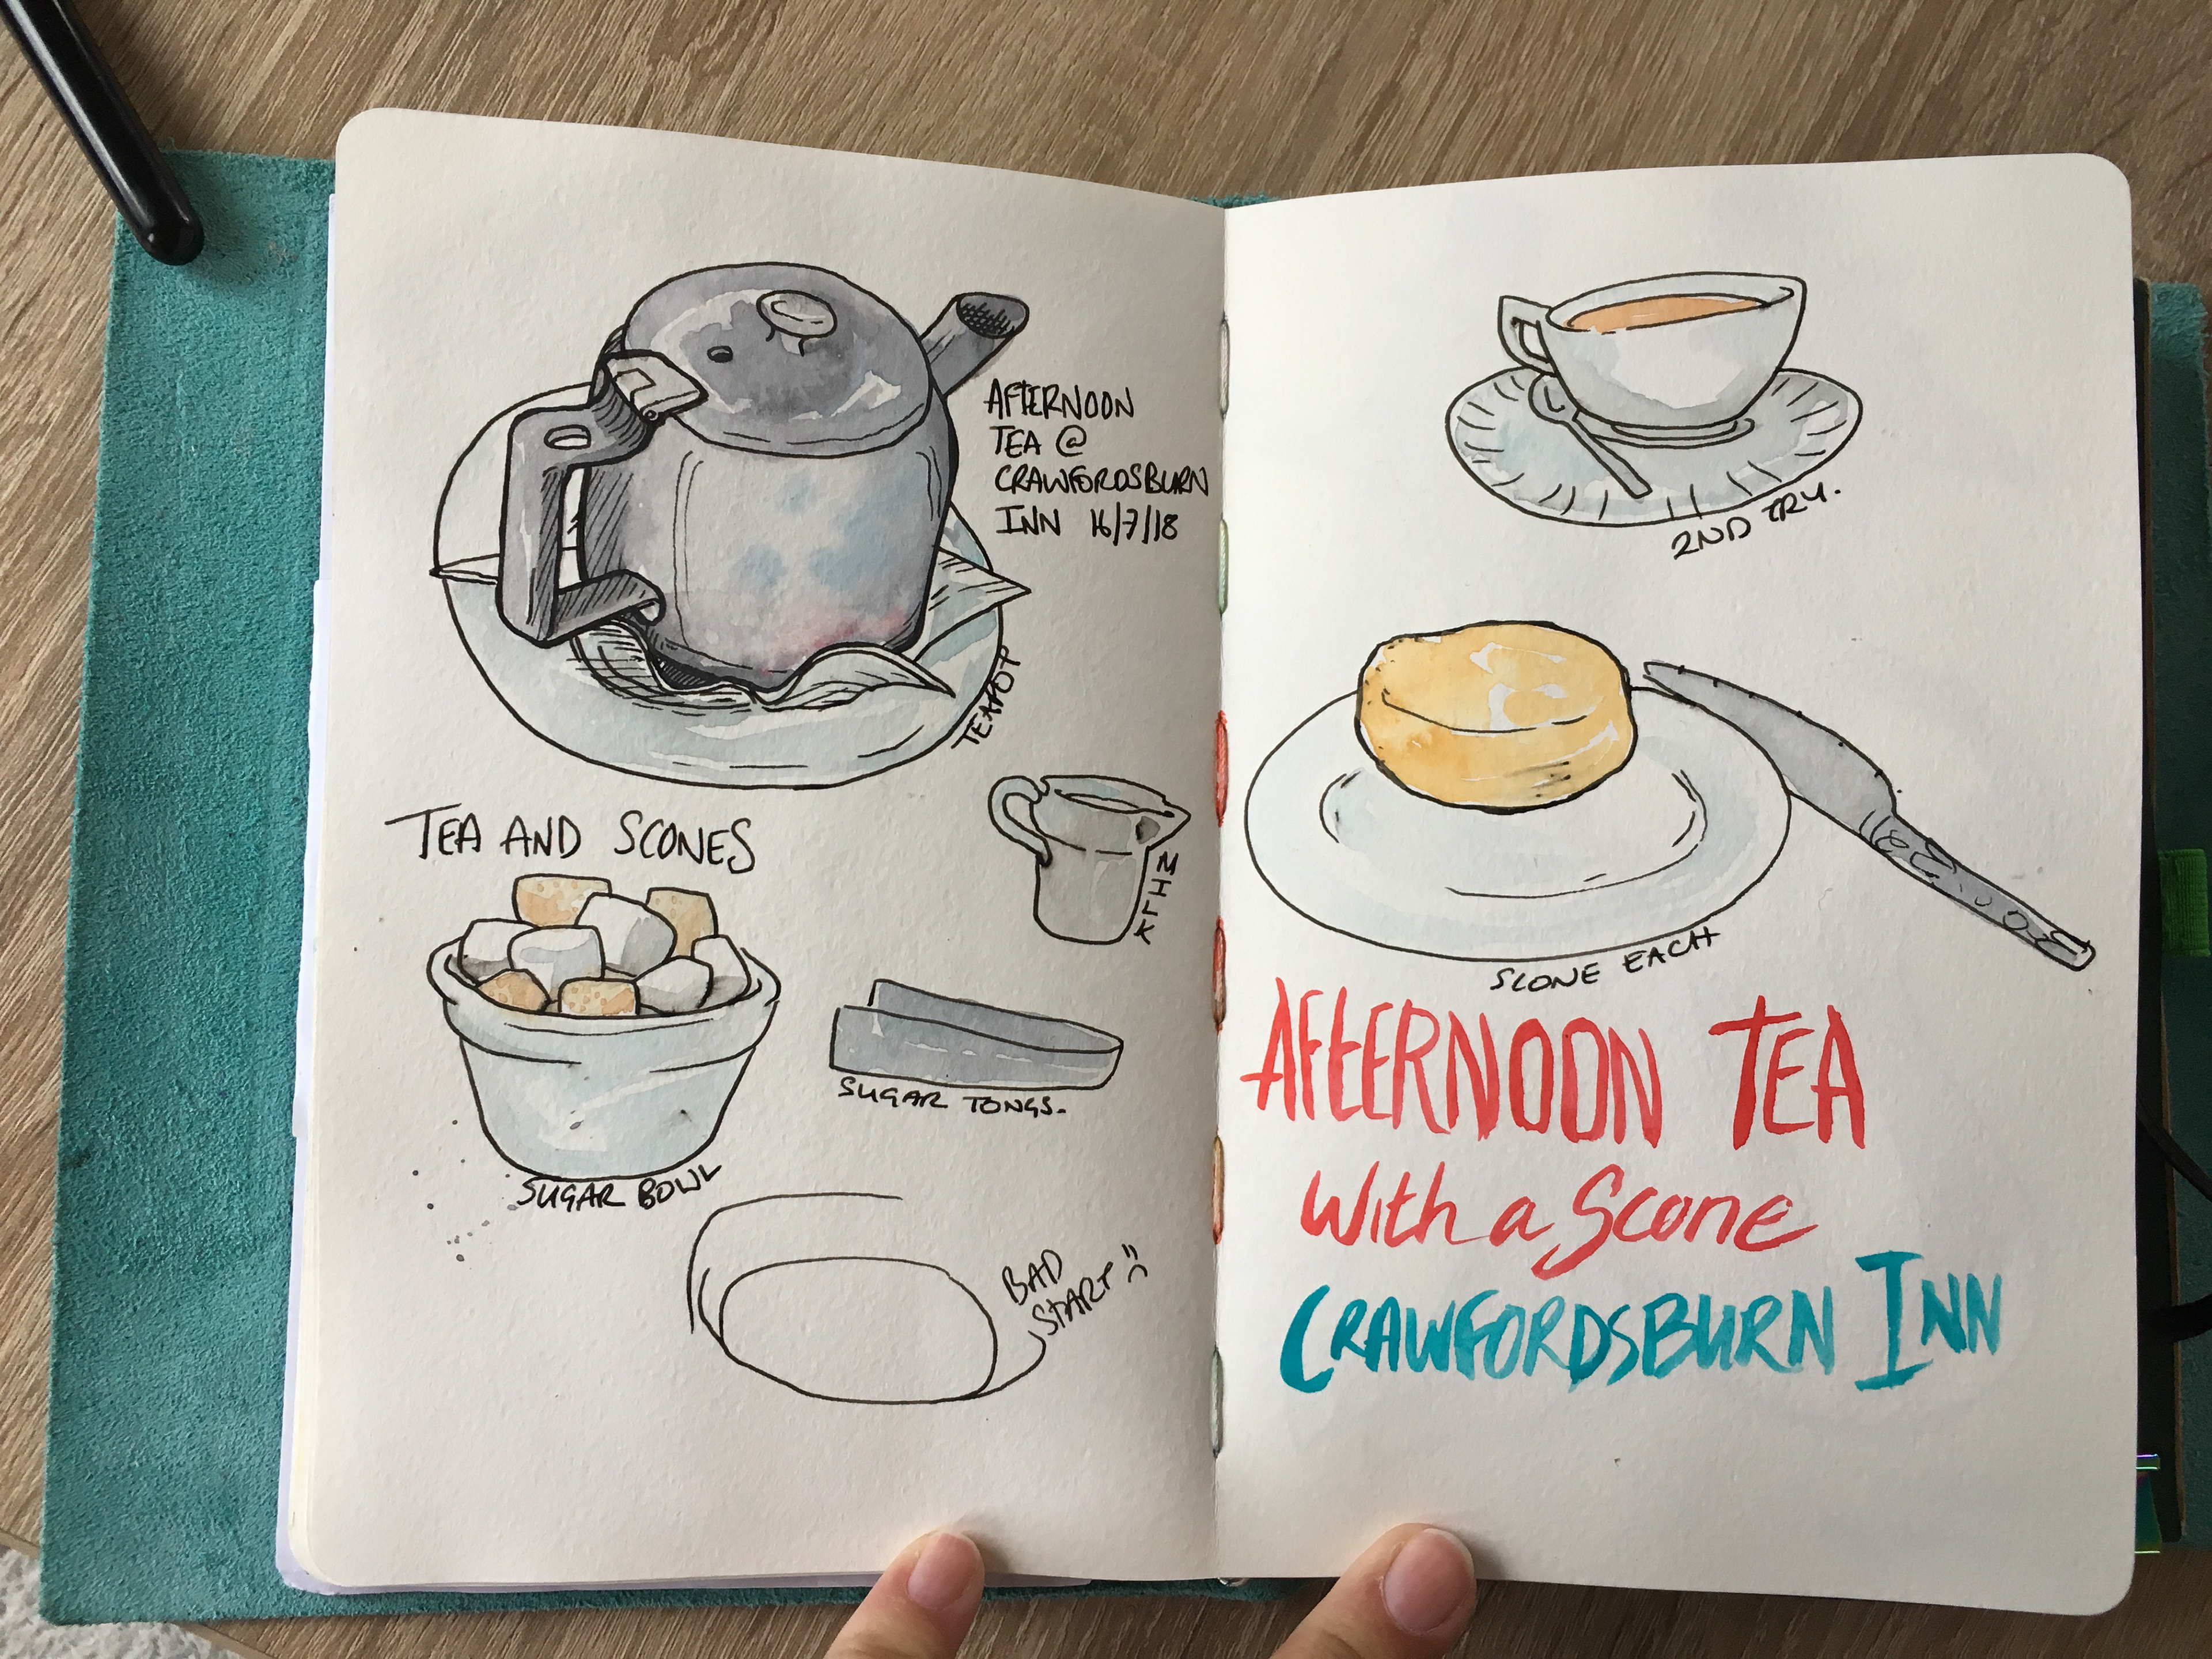 AFTERNOON
TEA @
CRAWFORDSBURN
INN 16/7/18
TEAPOT
TEA AND SCONES
MILK
SUGAR TONGS.
SUGAR BOWL
BAD
START
2ND TRY.
SCONE EACH
AFTERNOON TEA
With a Scone
CRAWFORDSBURN INN